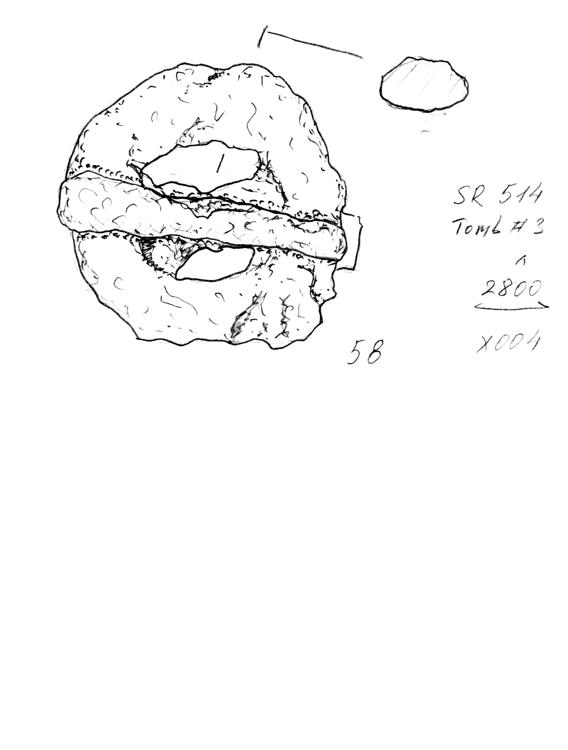 SR 514
Tomb # 3
^
2800
X004
58